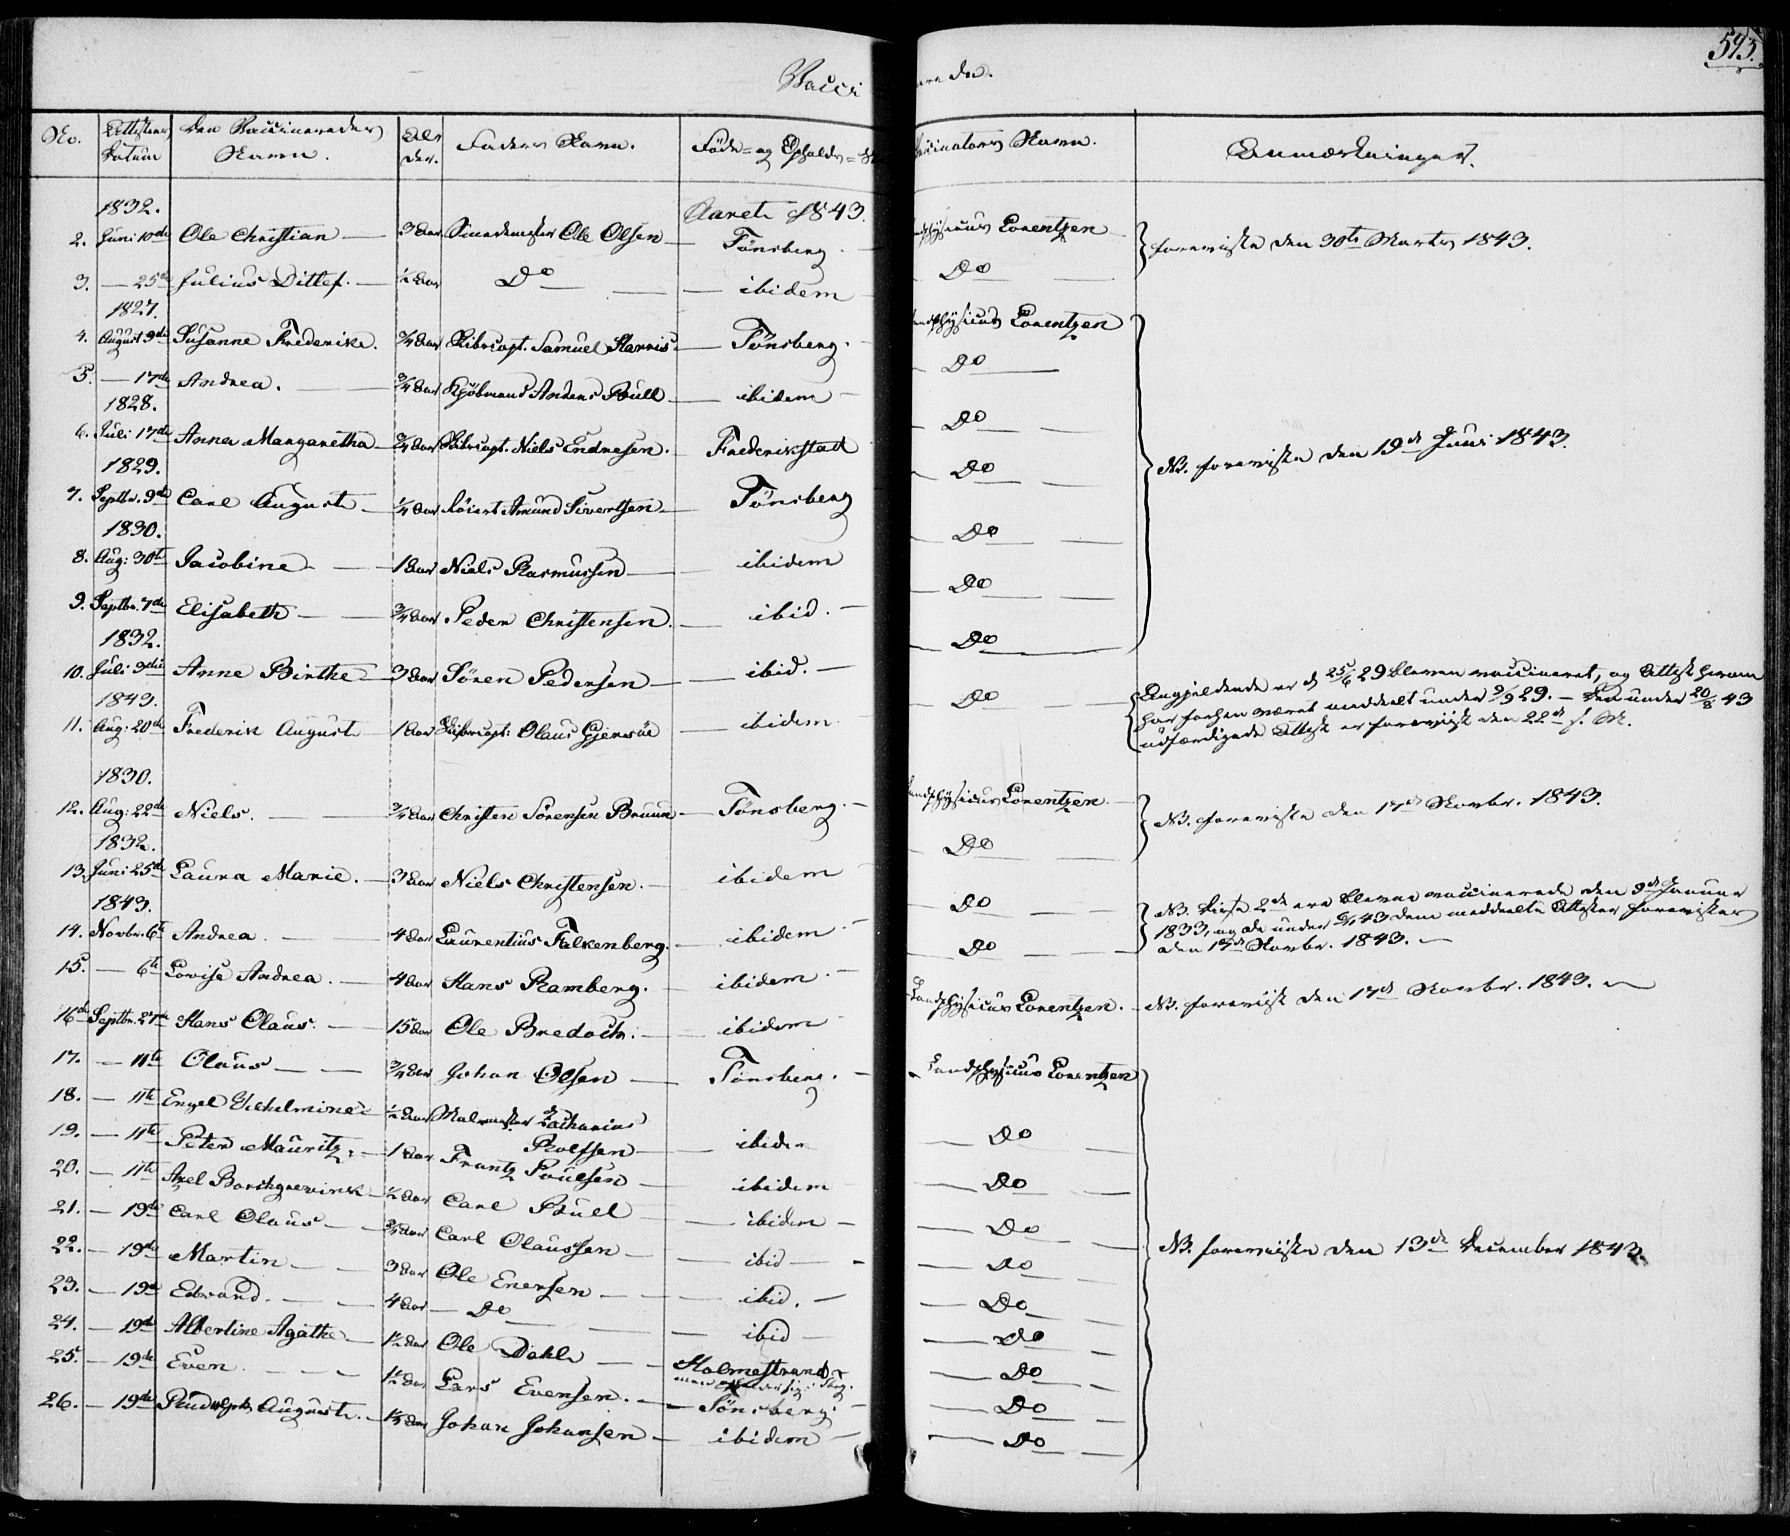 593.
Vacci nerede.
No. Attestens Datum Den Vaccineredes Navn. Alder. Faders Navn. Føde- og Opholds- Vaccinators Navn. Anmærkninger.
1832. Aaret 1843.
2. Juni 10de Ole Christian 3 Aar Ole Olsen Tönsberg Landphysicus Lorentzen foreviste den 30te Marts 1843.
3. 25de Julius Ditlef. ½ Aar Do ibidem Do
1827.
4. August 9de Susanne Frederike. ¾ Aar Skibscapt. Samuel Harris Tönsberg. Landphysicus Lorentzen
5. 17de Andrea. ¾ Aar Kjöbmand Anders Bull ibidem Do
1828.
6. Juli 17de Anna Margaretha ¾ Aar Skibscapt. Niels Endresen. Frederikstad Do NB. foreviste den 19de Juni 1843.
1829.
7. Septbr. 9de Carl August ¼ Aar Amund Sivertsen Tönsberg Do
1830.
8. Aug: 30te Jacobine 1 Aar Niels Rasmussen ibidem Do
9. Septbr. 7de Elisabeth ¾ Aar Peder Christensen. ibid. Do
1832.
10. Juli 9de Anne Birthe 3 Aar Sören Pedersen ibid. Do
1843.
11. Aug: 20de Frederik August 1 Aar Skibscapt: Olaus Gjersöe ibidem Do
Angjeldende er d 25/6 29 bleven vaccineret, og Attest herom
har forhen været meddeelt under 9/9 29. – Den under 20/8 43
udfærdigede Attest er foreviist den 22de s. M.
1830.
12. Aug: 22de Niels. ¾ Aar Christen Sörensen Bruun Tönsberg. Landphysicus Lorentzen. NB. foreviste den 17de Novbr. 1843.
1832.
13. Juni 25de Laura Marie. 3 Aar Niels Christensen. ibidem Do
1843.
14. Novbr. 6te Andrea. 4 Aar Laurentius Falkenberg. ibidem Do NB. Disse 2de ere blevne vaccinerede den 9de Januar
15. 6te Lovise Andrea. 4 Aar Hans Ramberg. ibidem. Do 1833, og de under 6/11 43 dem meddeelte Attester forevister
den 17de Novbr. 1843.
16de Septbr. 27de Hans Olaus. 15 Aar Ole Bredoch. ibidem Landphysicus Lorentzen. NB. foreviist den 17de Novbr. 1843.
17. 11te Olaus ¾ Aar Johan Olsen Tönsberg. Landphysicus Lorentzen
18. 11te Engel Vilhelmine ½ Aar Malermester Zacharias
Rolfsen ibidem Do
19. 11te Peter Mauritz. 1 Aar Frantz Poulsen ibidem Do
20. 11te Axel Borchgrevink ½ Aar Carl Bull ibidem Do
21. 19de Carl Olaus ¾ Aar Carl Olaussen ibid Do NB. foreviste den 13de December 1843.
22. 19de Martin 3 Aar Ole Enersen ibid. Do
23. 19de Edvard. 4 Aar Do ibid Do
24. 19de Albertine Agathe 1½ Aar Ole Dahl Holmestrand Do
25. 19de Even 1½ Aar Lars Evensen. Tönsberg Do
26. 19de Rudolph August. 1½ Aar Johan Johansen ibidem Do